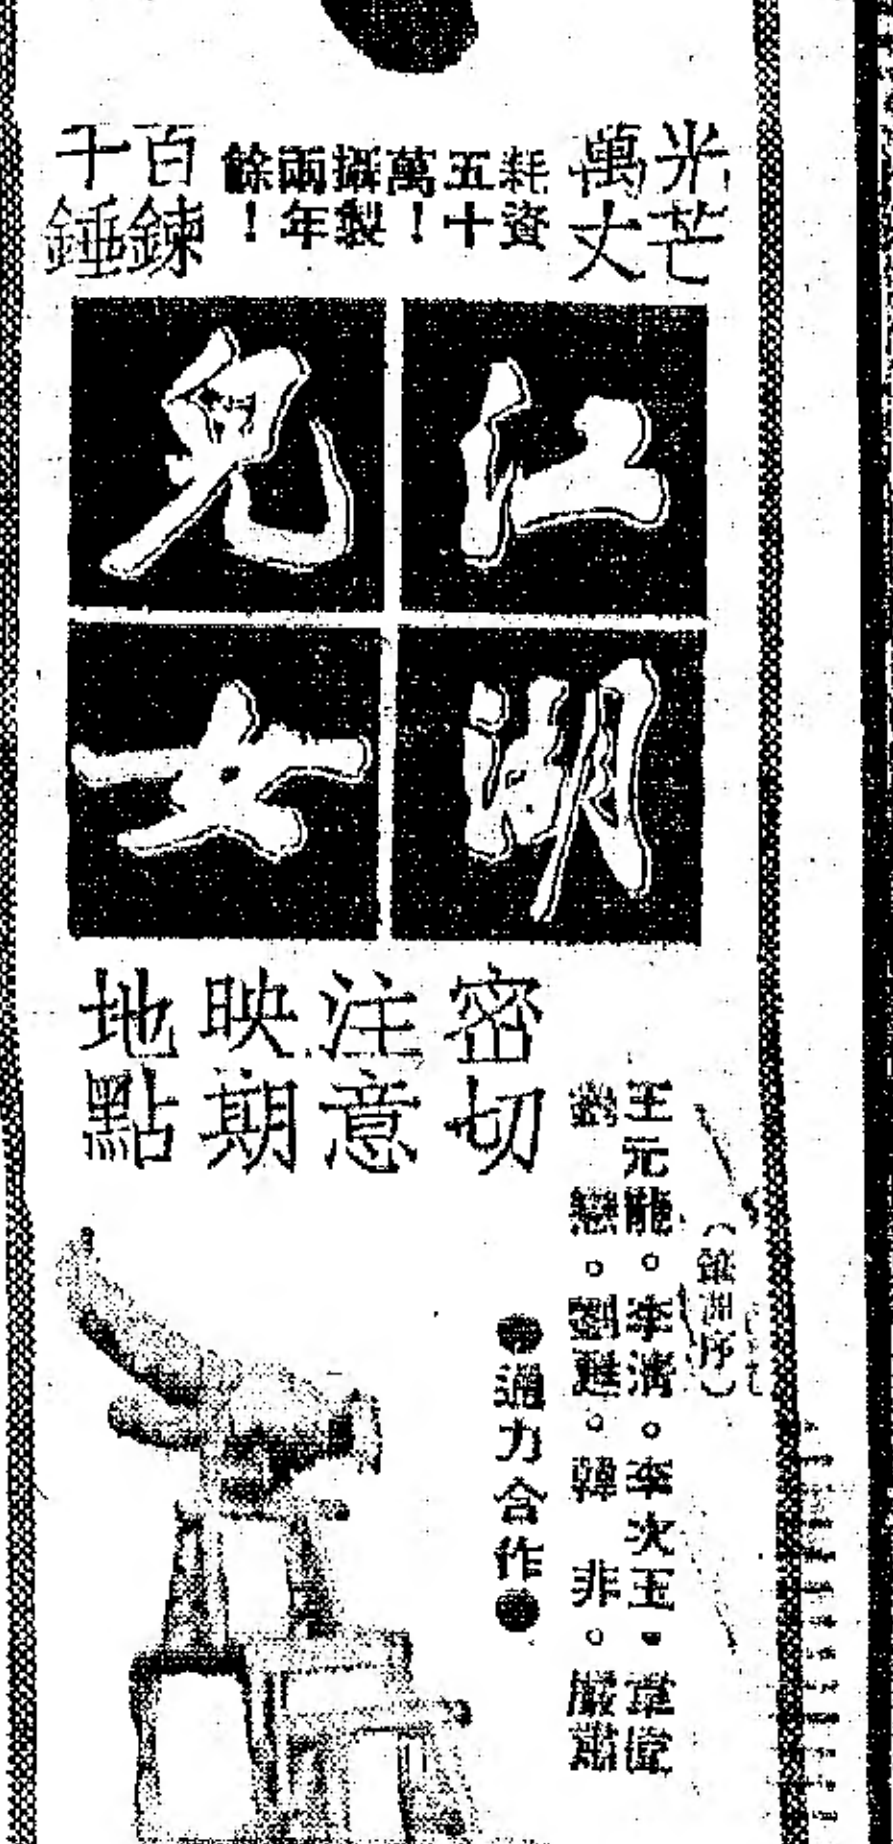 光芒
萬丈
耗資
五十
萬！
攝製
兩年
餘！
百鍊
千錘
江湖
兒女
密切
注意
映期
地點
王元龍。李清。李次玉。韋偉
劉戀。劉甦。韓非。嚴肅
●通力合作●